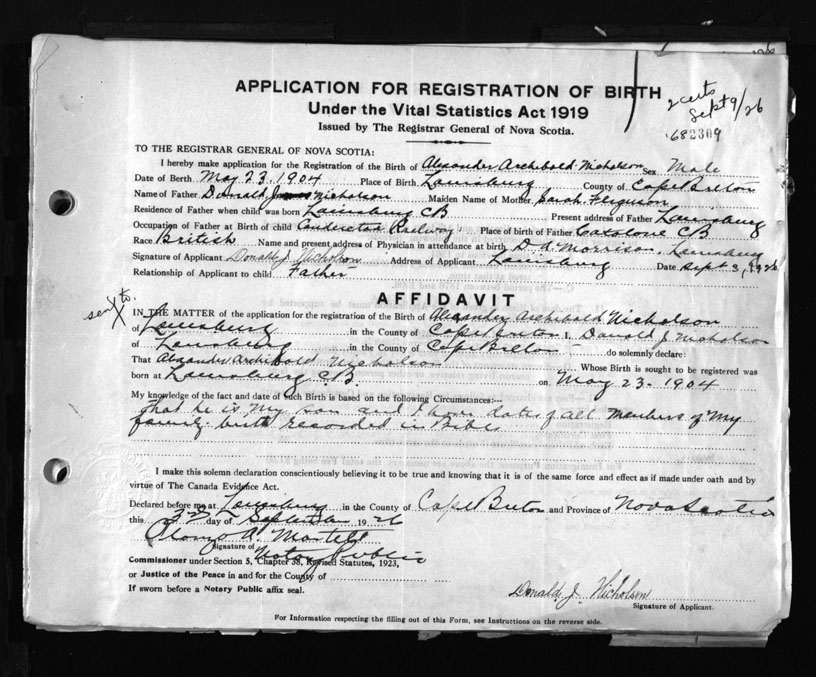 APPLICATION FOR REGISTRATION OF BIRTH
Under the Vital Statistics Act 1919
Issued by The Registrar General of Nova Scotia.
2 certs
Sept 9/26
682309
TO THE REGISTRAR GENERAL OF NOVA SCOTIA:
I hereby make application for the Registration of the Birth of Alexander Archibold Nicholson Sex Male
Date of Birth May 23. 1904 Place of Birth Louisburg County of Cape Breton
Name of Father Donald Nicholson Maiden Name of Mother Sarah Ferguson
Residence of Father when child was born Louisburg CB Present address of Father Louisburg
Occupation of Father at Birth of child Conductor Railway Place of Birth of Father Catalone CB
Race British Name and present address of Physician in attendance at birth D. A. Morrison, Louisburg
Signature of Applicant Donald J. Nicholson Address of Applicant Louisburg Date Sept 3, 1926
Relationship of Applicant to child Father
AFFIDAVIT
IN THE MATTER of the application for the registration of the Birth of Alexander Archibold Nicholson
of Louisburg in the County of Cape Breton I, Donald J. Nicholson
of Louisburg in the County of Cape Breton do solemnly declare:
That Alexander Archibold Nicholson Whose Birth is sought to be registered was
born at Louisburg C.B. on May 23 - 1904
My knowledge of the fact and date of such Birth is based on the following Circumstances:—
That he is my son and I have dates of all members of my
family birth recorded in Bible
I make this solemn declaration conscientiously believing it to be true and knowing that it is of the same force and effect as if made under oath and by
virtue of The Canada Evidence Act.
Declared before me at Louisburg in the County of Cape Breton and Province of Nova Scotia
this 3rd day of September 1926
Alonzo A. Martell
Signature of Notary Public
Commissioner under Section 5, Chapter 38, Revised Statutes, 1923,
or Justice of the Peace in and for the County of
If sworn before a Notary Public affix seal.
Donald J. Nicholson
Signature of Applicant.
For Information respecting the filling out of this Form, see Instructions on the reverse side.